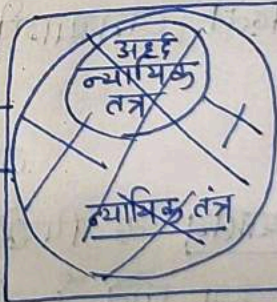 अर्द्ध
न्यायिक
तंत्र
न्यायिक तंत्र